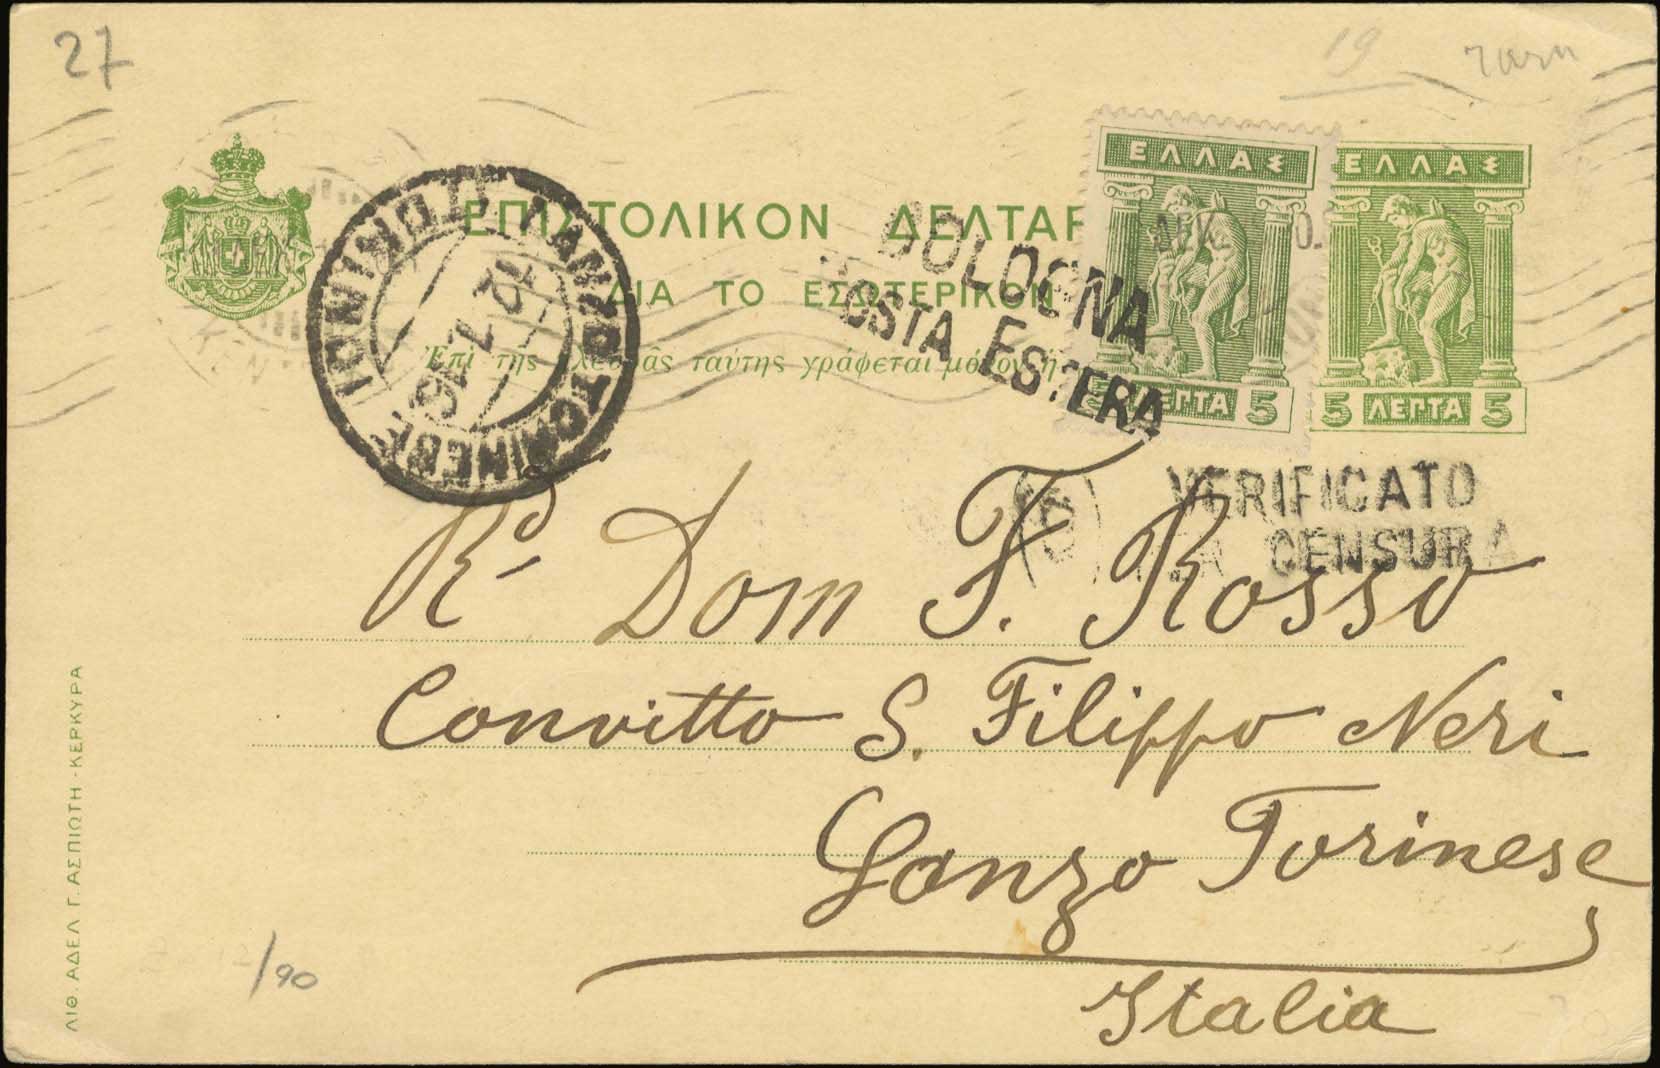 27
19
ΕΠΙΣΤΟΛΙΚΟΝ ΔΕΛΤΑΡ
ΔΙΑ ΤΟ ΕΣΩΤΕΡΙΚΟΝ
Ἐπὶ τῆς πλευρᾶς ταύτης γράφεται μόνον ἡ
ΕΛΛΑΣ
ΛΕΠΤΑ 5
ΕΛΛΑΣ
5 ΛΕΠΤΑ 5
12 1 16
BOLOGNA
POSTA ESTERA
VERIFICATO
CENSURA
Rd Dom F. Rosso
Convitto S. Filippo Neri
Lanzo Torinese
Italia
/90
ΛΙΘ. ΑΔΕΛ Γ. ΑΣΠΙΩΤΗ - ΚΕΡΚΥΡΑ